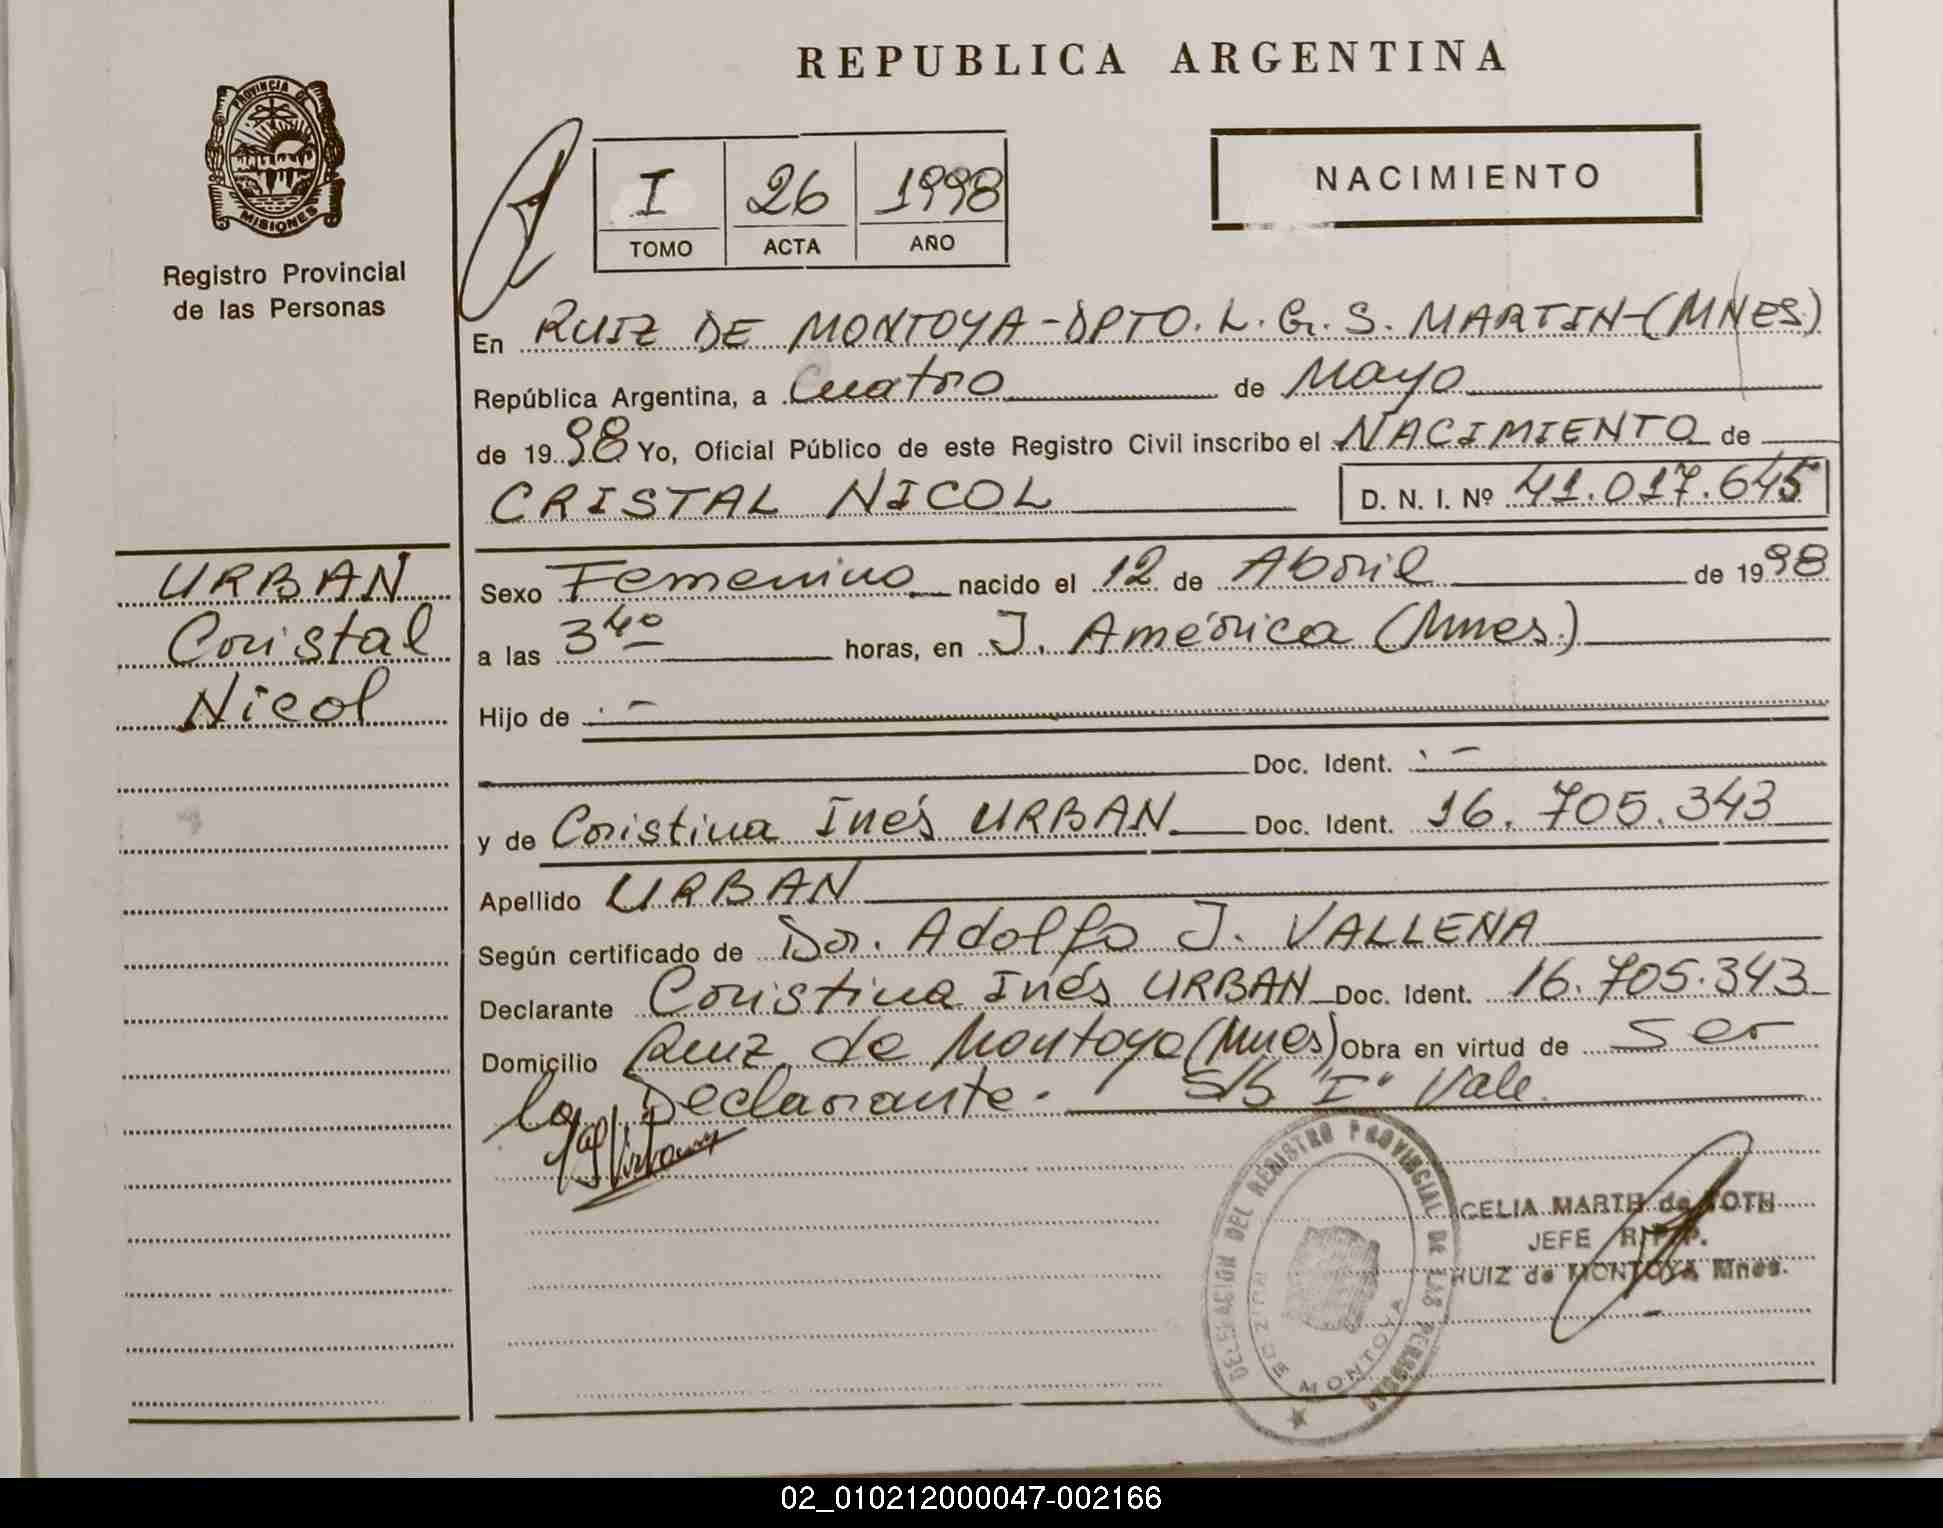 REPUBLICA ARGENTINA
PROVINCIA DE
MISIONES
Registro Provincial
de las Personas
I 26 1998
TOMO ACTA AÑO
NACIMIENTO
En RUIZ DE MONTOYA-DPTO. L. G. S. MARTIN-(MNES)
República Argentina, a Cuatro de Mayo
de 1998 Yo, Oficial Público de este Registro Civil inscribo el NACIMIENTO de
CRISTAL NICOL D. N. I. Nº 41.017.645
URBAN
Cristal
Nicol
Sexo Femenino nacido el 12 de Abril de 1998
a las 3 40 horas, en J. América (Mnes.)
Hijo de . -
Doc. Ident. . -
y de Cristina Inés URBAN Doc. Ident. 16.705.343
Apellido URBAN
Según certificado de Dr. Adolfo J. VALLENA
Declarante Cristina Inés URBAN Doc. Ident. 16.705.343
Domicilio Ruiz de Montoya (Mnes) Obra en virtud de ser
la Declarante. S/b "I" Vale.
DELEGACION DEL REGISTRO PROVINCIAL DE LAS PERSONAS
RUIZ DE MONTOYA
CELIA MARTH de TOTH
JEFE R.P.P.
RUIZ de MONTOYA Mnes.
02_010212000047-002166